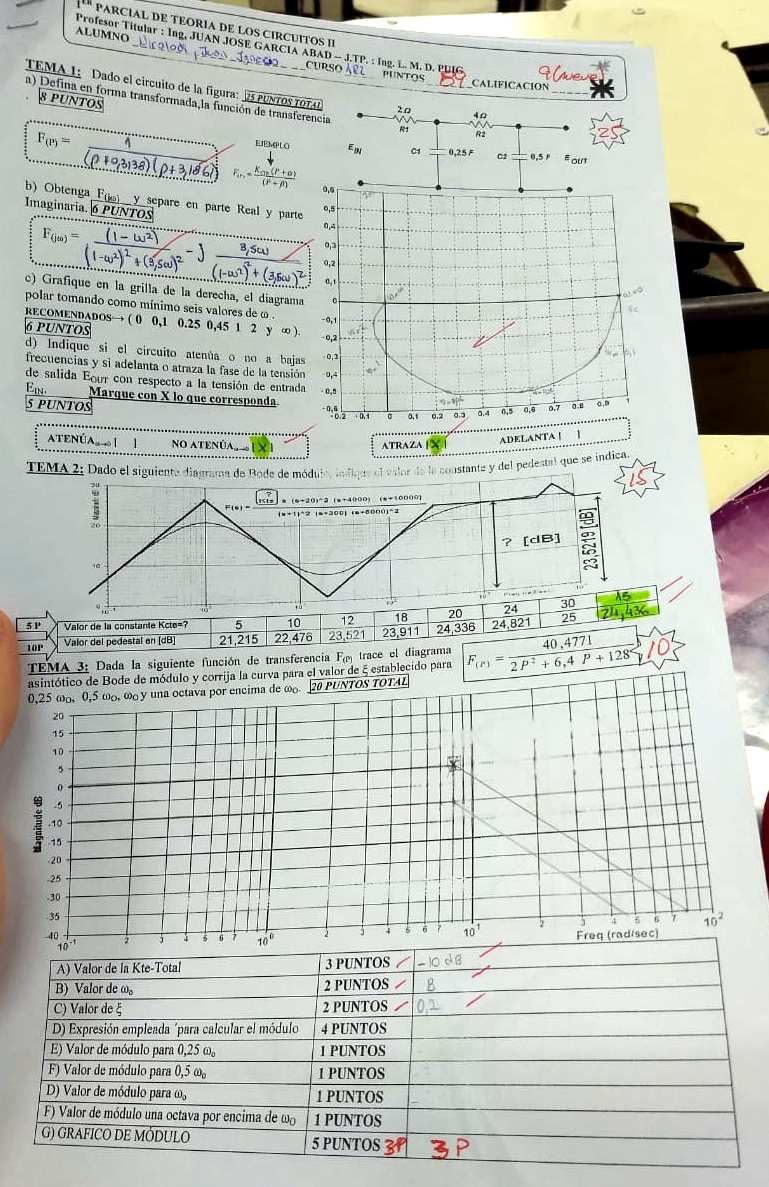 1ER PARCIAL DE TEORIA DE LOS CIRCUITOS II
Profesor Titular : Ing, JUAN JOSE GARCIA ABAD – J.TP. : Ing. L. M. D. PUIG
ALUMNO CURSO PUNTOS 89 CALIFICACION 9(nueve)
TEMA 1: Dado el circuito de la figura: 25 PUNTOS TOTAL
a) Defina en forma transformada,la función de transferencia
8 PUNTOS
F(P) = 1 / (P+0,3138)(P+3,1861)
EJEMPLO
F(P) = KCTE(P+α) / (P+β)
2Ω
R1
4Ω
R2
EIN
C1
0,25 F
C2
0,5 F
EOUT
25
b) Obtenga F(jω) y separe en parte Real y parte
Imaginaria. 6 PUNTOS
F(jω) = (1-ω²) / (1-ω²)²+(3,5ω)² - J 3,5ω / (1-ω²)²+(3,5ω)²
c) Grafique en la grilla de la derecha, el diagrama
polar tomando como mínimo seis valores de ω .
RECOMENDADOS→ ( 0 0,1 0.25 0,45 1 2 y ∞ ).
6 PUNTOS
d) Indique si el circuito atenúa o no a bajas
frecuencias y si adelanta o atraza la fase de la tensión
de salida EOUT con respecto a la tensión de entrada
EIN. Marque con X lo que corresponda.
5 PUNTOS
0,6
0,5
0,4
0,3
0,2
0,1
0
-0,1
-0,2
-0,3
-0,4
-0,5
-0,6
-0.2 -0,1 0 0,1 0.2 0,3 0,4 0,5 0,6 0.7 0.8 0.9 1
ω=0
ATENÚAω→0 [ ] NO ATENÚAω→0 [X]
ATRAZA [X] ADELANTA [ ]
TEMA 2: Dado el siguiente diagrama de Bode de módulo, indique el valor de la constante y del pedestal que se indica.
15
F(s) = Kte * (s+20)^2 (s+4000) (s+10000) / (s+1)^2 (s+300) (s+6000)^2
?
? [dB]
23,5219 [dB]
5 P Valor de la constante Kcte=? 5 10 12 18 20 24 30 15
10P Valor del pedestal en [dB] 21,215 22,476 23,521 23,911 24,336 24,821 25 24,436
TEMA 3: Dada la siguiente función de transferencia F(P) trace el diagrama
asintótico de Bode de módulo y corrija la curva para el valor de ξ establecido para
0,25 ω0, 0,5 ω0, ω0 y una octava por encima de ω0. 20 PUNTOS TOTAL
F(P) = 40,4771 / 2P² + 6,4 P + 128
10
Magnitude dB
20
15
10
5
0
-5
-10
-15
-20
-25
-30
-35
-40
10-1 2 3 4 5 6 7 100 2 3 4 5 6 7 101 2 3 4 5 6 7 102
Freq (rad/sec)
A) Valor de la Kte-Total 3 PUNTOS -10 dB
B) Valor de ω0 2 PUNTOS 8
C) Valor de ξ 2 PUNTOS 0,2
D) Expresión empleada ´para calcular el módulo 4 PUNTOS
E) Valor de módulo para 0,25 ω0 1 PUNTOS
F) Valor de módulo para 0,5 ω0 1 PUNTOS
D) Valor de módulo para ω0 1 PUNTOS
F) Valor de módulo una octava por encima de ω0 1 PUNTOS
G) GRAFICO DE MÓDULO 5 PUNTOS 3P 3P